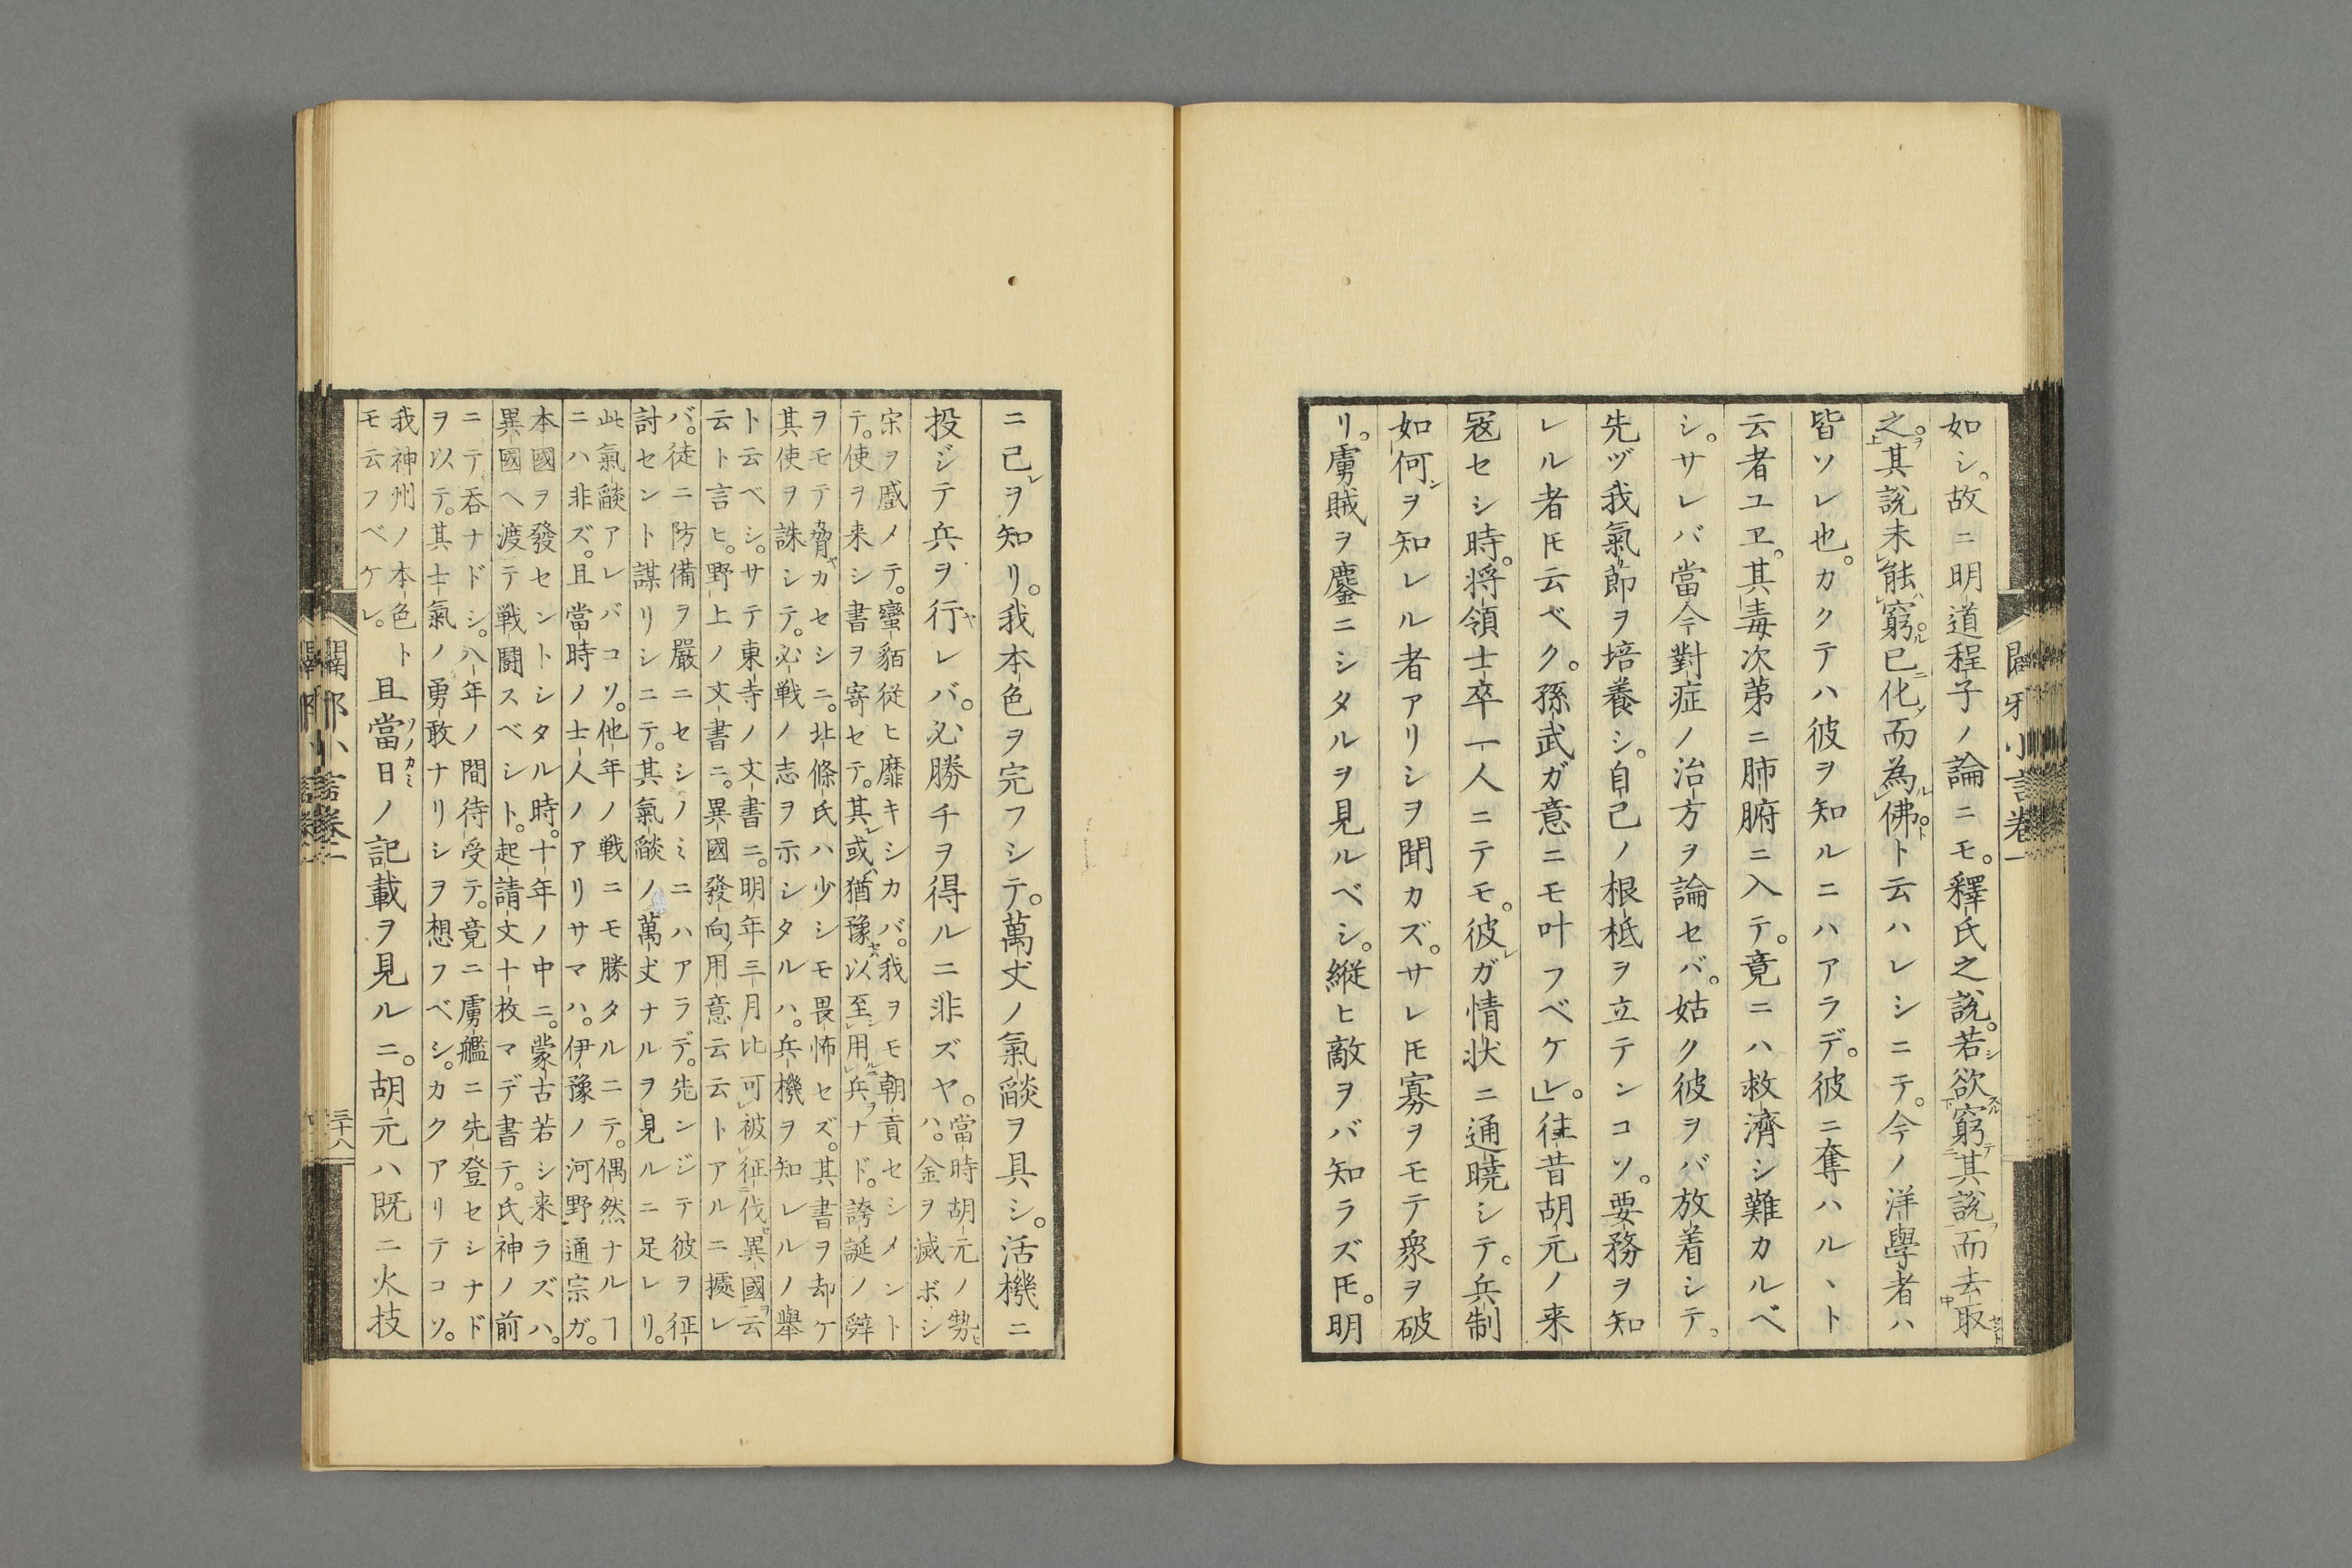 如シ。故ニ明道程子ノ論ニモ。釋氏之説。若欲窮其説而去取
之。其説未能窮。已化而為佛ト云ハレシニテ。今ノ洋學者ハ
皆ソレ也。カクテハ彼ヲ知ルニハアラデ。彼ニ奪ハル丶ト
云者ユヱ。其毒次第ニ肺腑ニ入テ。竟ニハ救濟シ難カルベ
シ。サレバ當今對症ノ治方ヲ論セバ。姑ク彼ヲバ放着シテ。
先ヅ我氣節ヲ培養シ。自己ノ根柢ヲ立テンコソ。要務ヲ知
レル者𪜈云ベク。孫武ガ意ニモ叶フベケレ」。往昔胡元ノ来
冦セシ時。将領士卒一人ニテモ。彼ガ情状ニ通曉シテ。兵制
如何ヲ知レル者アリシヲ聞カズ。サレ𪜈寡ヲモテ衆ヲ破
リ。虜賊ヲ鏖ニシタルヲ見ルベシ。縦ヒ敵ヲバ知ラズ𪜈。明
ニ己ヲ知リ。我本色ヲ完フシテ。萬丈ノ氣燄ヲ具シ。活機ニ
投ジテ兵ヲ行レバ。必勝チヲ得ルニ非ズヤ。當時胡元ノ勢ハ。金ヲ滅ボシ
宋ヲ蹙メテ。蠻貊従ヒ靡キシカバ。我ヲモ朝貢セシメント
テ。使ヲ来シ書ヲ寄セテ。其或猶豫以至用兵ナド。誇誕ノ辭
ヲモテ脅カセシニ。北條氏ハ少シモ畏怖セズ。其書ヲ却ケ
其使ヲ誅シテ。必戦ノ志ヲ示シタルハ。兵機ヲ知レルノ擧
ト云ベシ。サテ東寺ノ文書ニ。明年三月比可被征伐異國云
云ト言ヒ。野上ノ文書ニ。異國發向用意云云トアルニ據レ
バ。徒ニ防備ヲ嚴ニセシノミニハアラデ。先ンジテ彼ヲ征
討セント謀リシニテ。其氣燄ノ萬丈ナルヲ見ルニ足レリ。
此氣燄アレバコソ。他年ノ戦ニモ勝タルニテ。偶然ナルヿ
ニハ非ズ。且當時ノ士人ノアリサマハ。伊豫ノ河野通宗ガ。
本國ヲ發セントシタル時。十年ノ中ニ。蒙古若シ来ラズハ。
異國ヘ渡テ戦鬪スベシト。起請文十枚マデ書テ。氏神ノ前
ニテ呑ナドシ。八年ノ間待受テ。竟ニ虜艦ニ先登セシナド
ヲ以テ。其士氣ノ勇敢ナリシヲ想フベシ。カクアリテコソ。
我神州ノ本色ト
モ云フベケレ。
且當日ノ記載ヲ見ルニ。胡元ハ既ニ火技